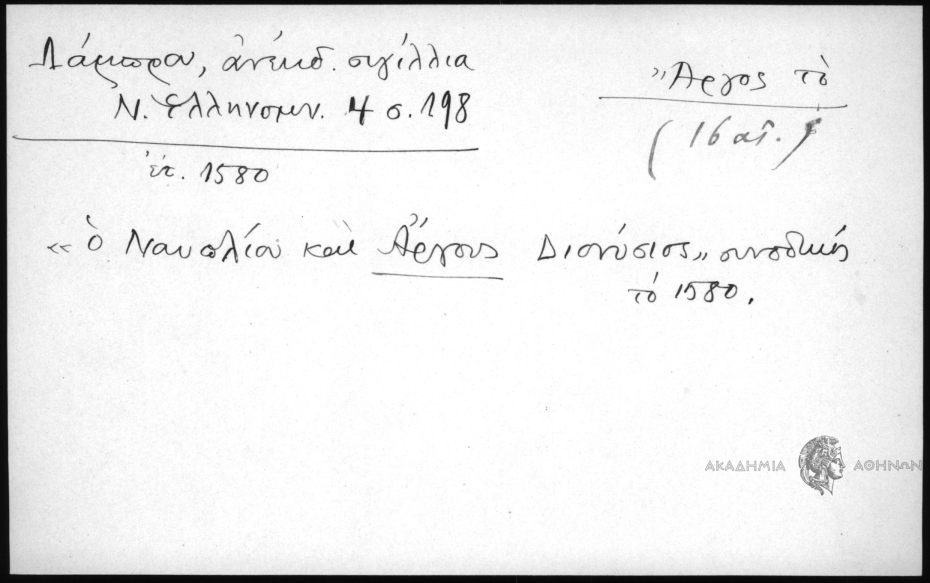 Λάμπρου, ἀνέκδ. σιγίλλια
Ν. Ἑλληνομν. 4 σ. 198
ἔτ. 1580
Ἄργος τὸ
(16 αἰ.)
«ὁ Ναυπλίου καὶ Ἄργους Διονύσιος» συνοδικῶς
τό 1580.
ΑΚΑΔΗΜΙΑ ΑΘΗΝΩΝ